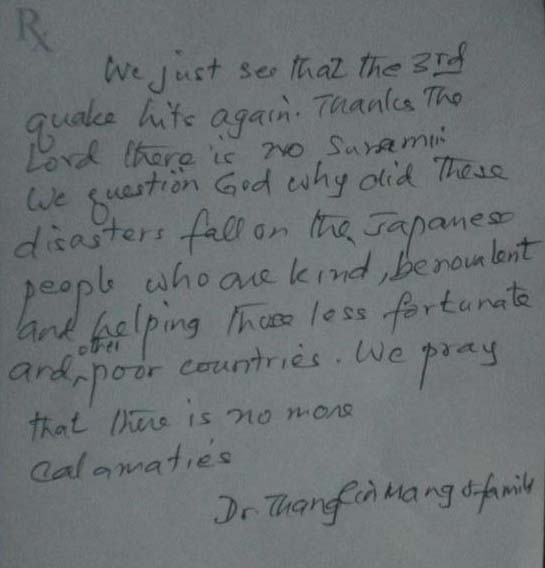 Rx
We just see that the 3rd
quake hits again. Thanks The
Lord there is no Sunami
We question God why did These
disasters fall on the Japanese
people who are kind, benovalent
and helping those less fortunate
and other poor countries. We pray
that there is no more
calamaties
Dr. Thang Cin Mang & family